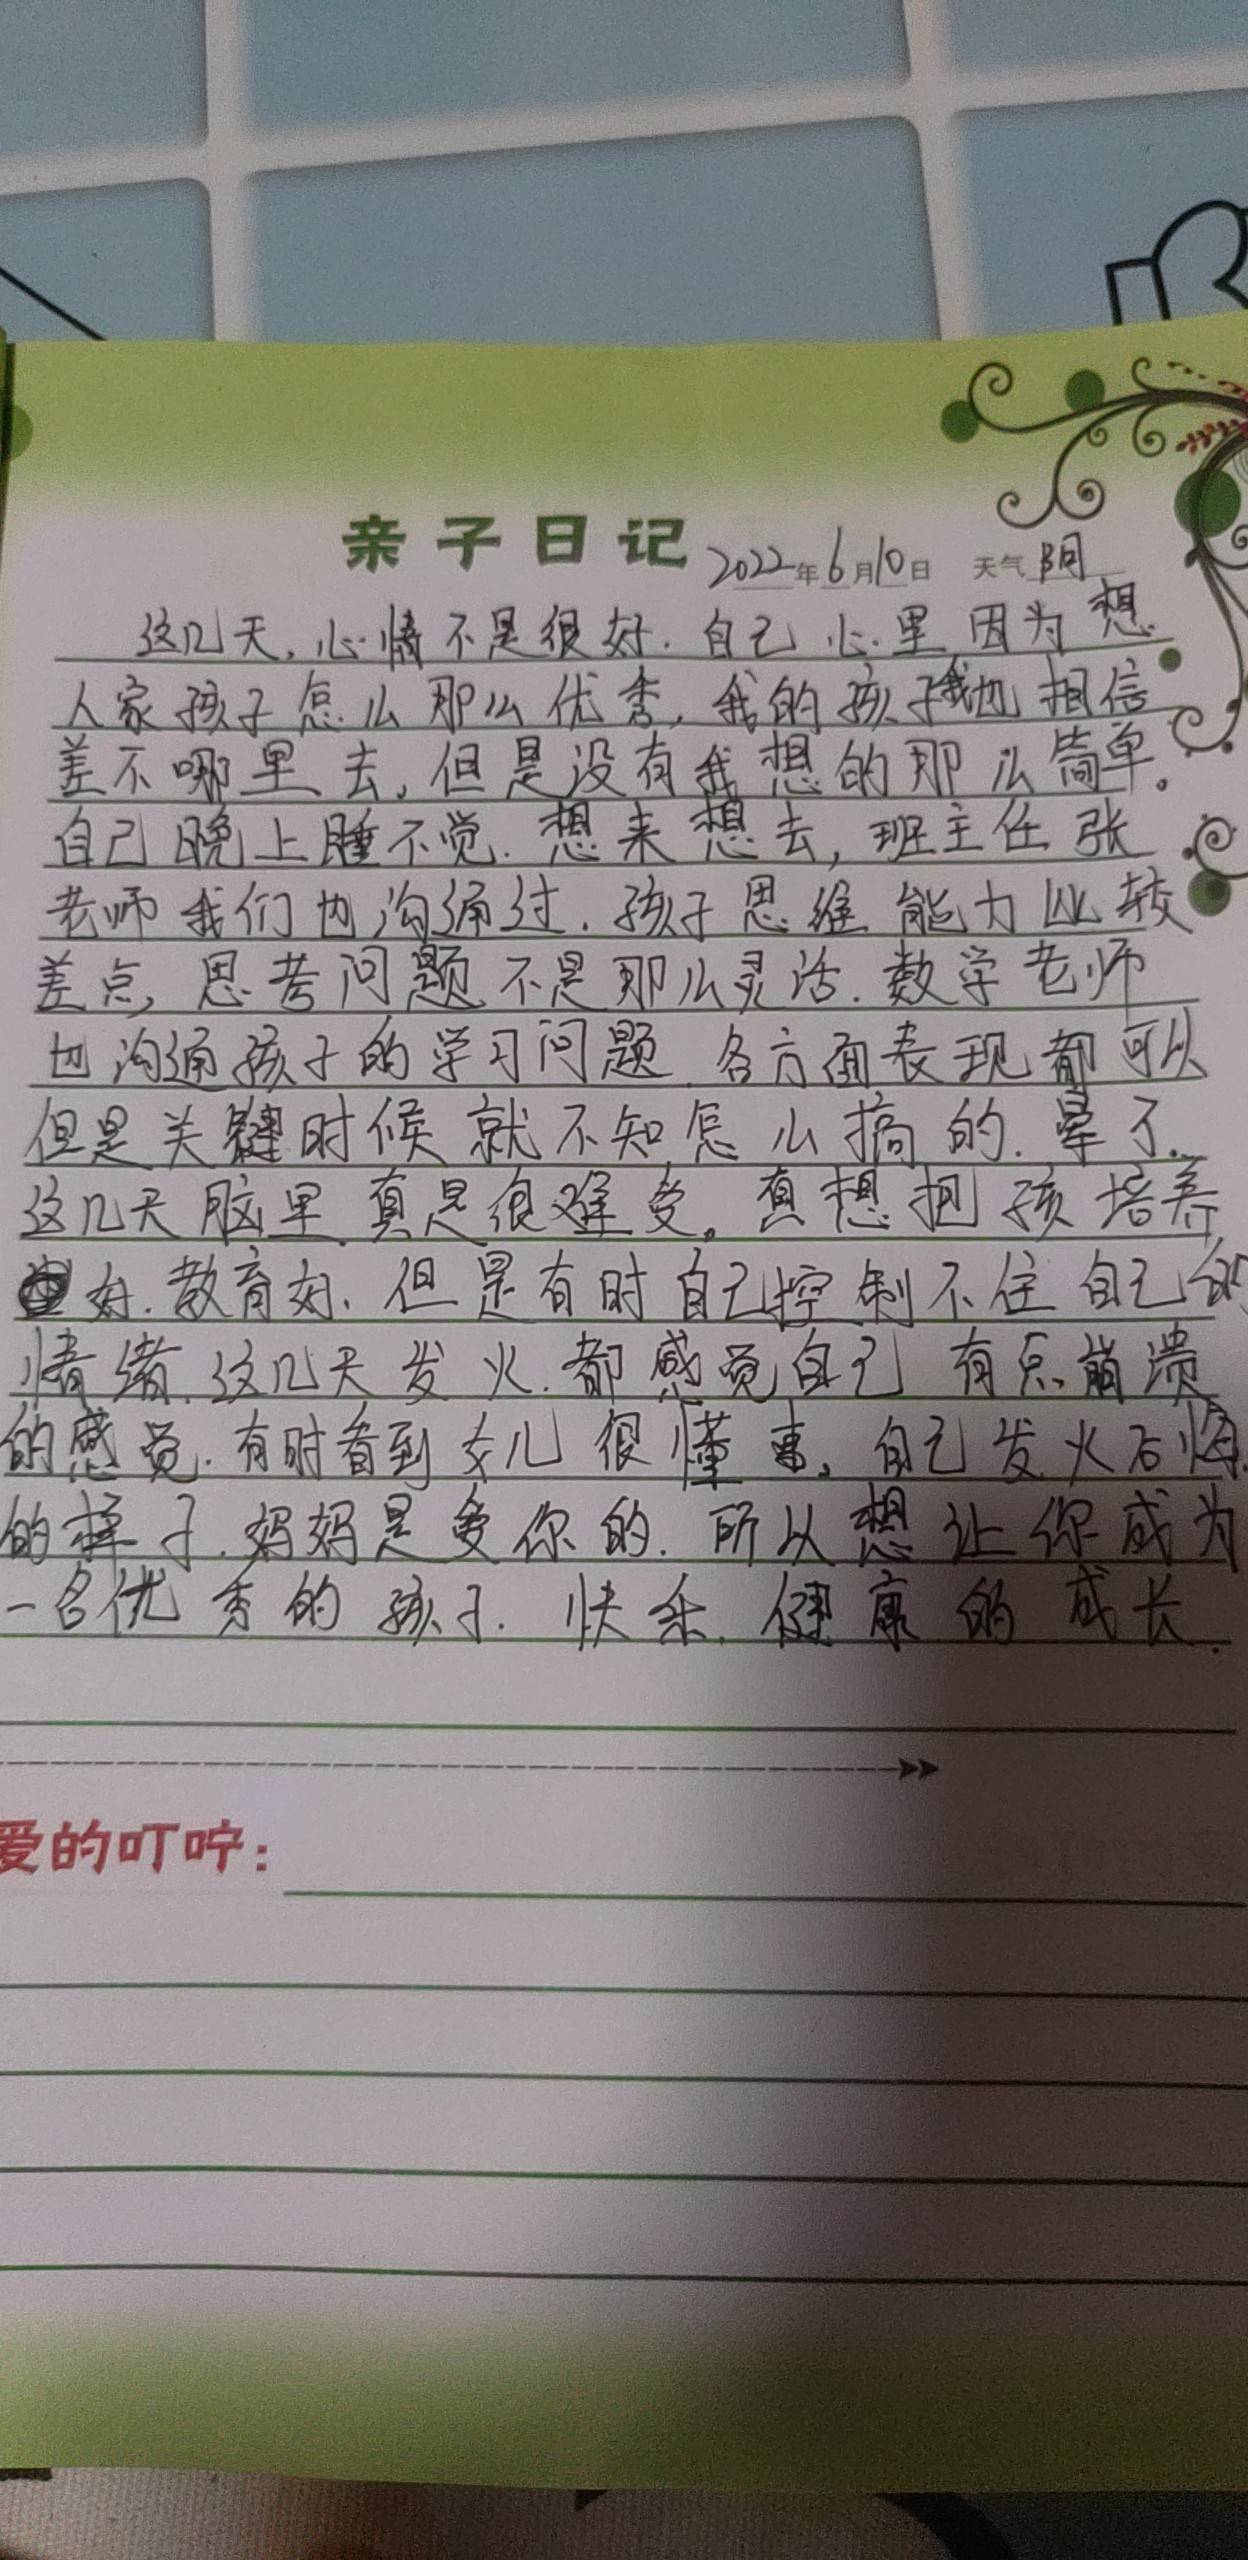 亲子日记 2022年6月10日 天气 阴
这几天,心情不是很好.自己心里因为想
人家孩子怎么那么优秀,我的孩子我也相信
差不哪里去,但是没有我想的那么简单。
自己晚上睡不觉.想来想去,班主任张
老师我们也沟通过.孩子思维能力比较
差点,思考问题不是那么灵活.数学老师
也沟通孩子的学习问题.各方面表现都可以
但是关键时候就不知怎么搞的.晕了.
这几天脑里真是很难受。真想把孩培养
好.教育好.但是有时自己控制不住自己的
情绪.这几天发火.都感觉自己有点崩溃
的感觉.有时看到女儿很懂事。自己发火后悔
的样子.妈妈是爱你的.所以想让你成为
一名优秀的孩子.快乐.健康的成长.
爱的叮咛: